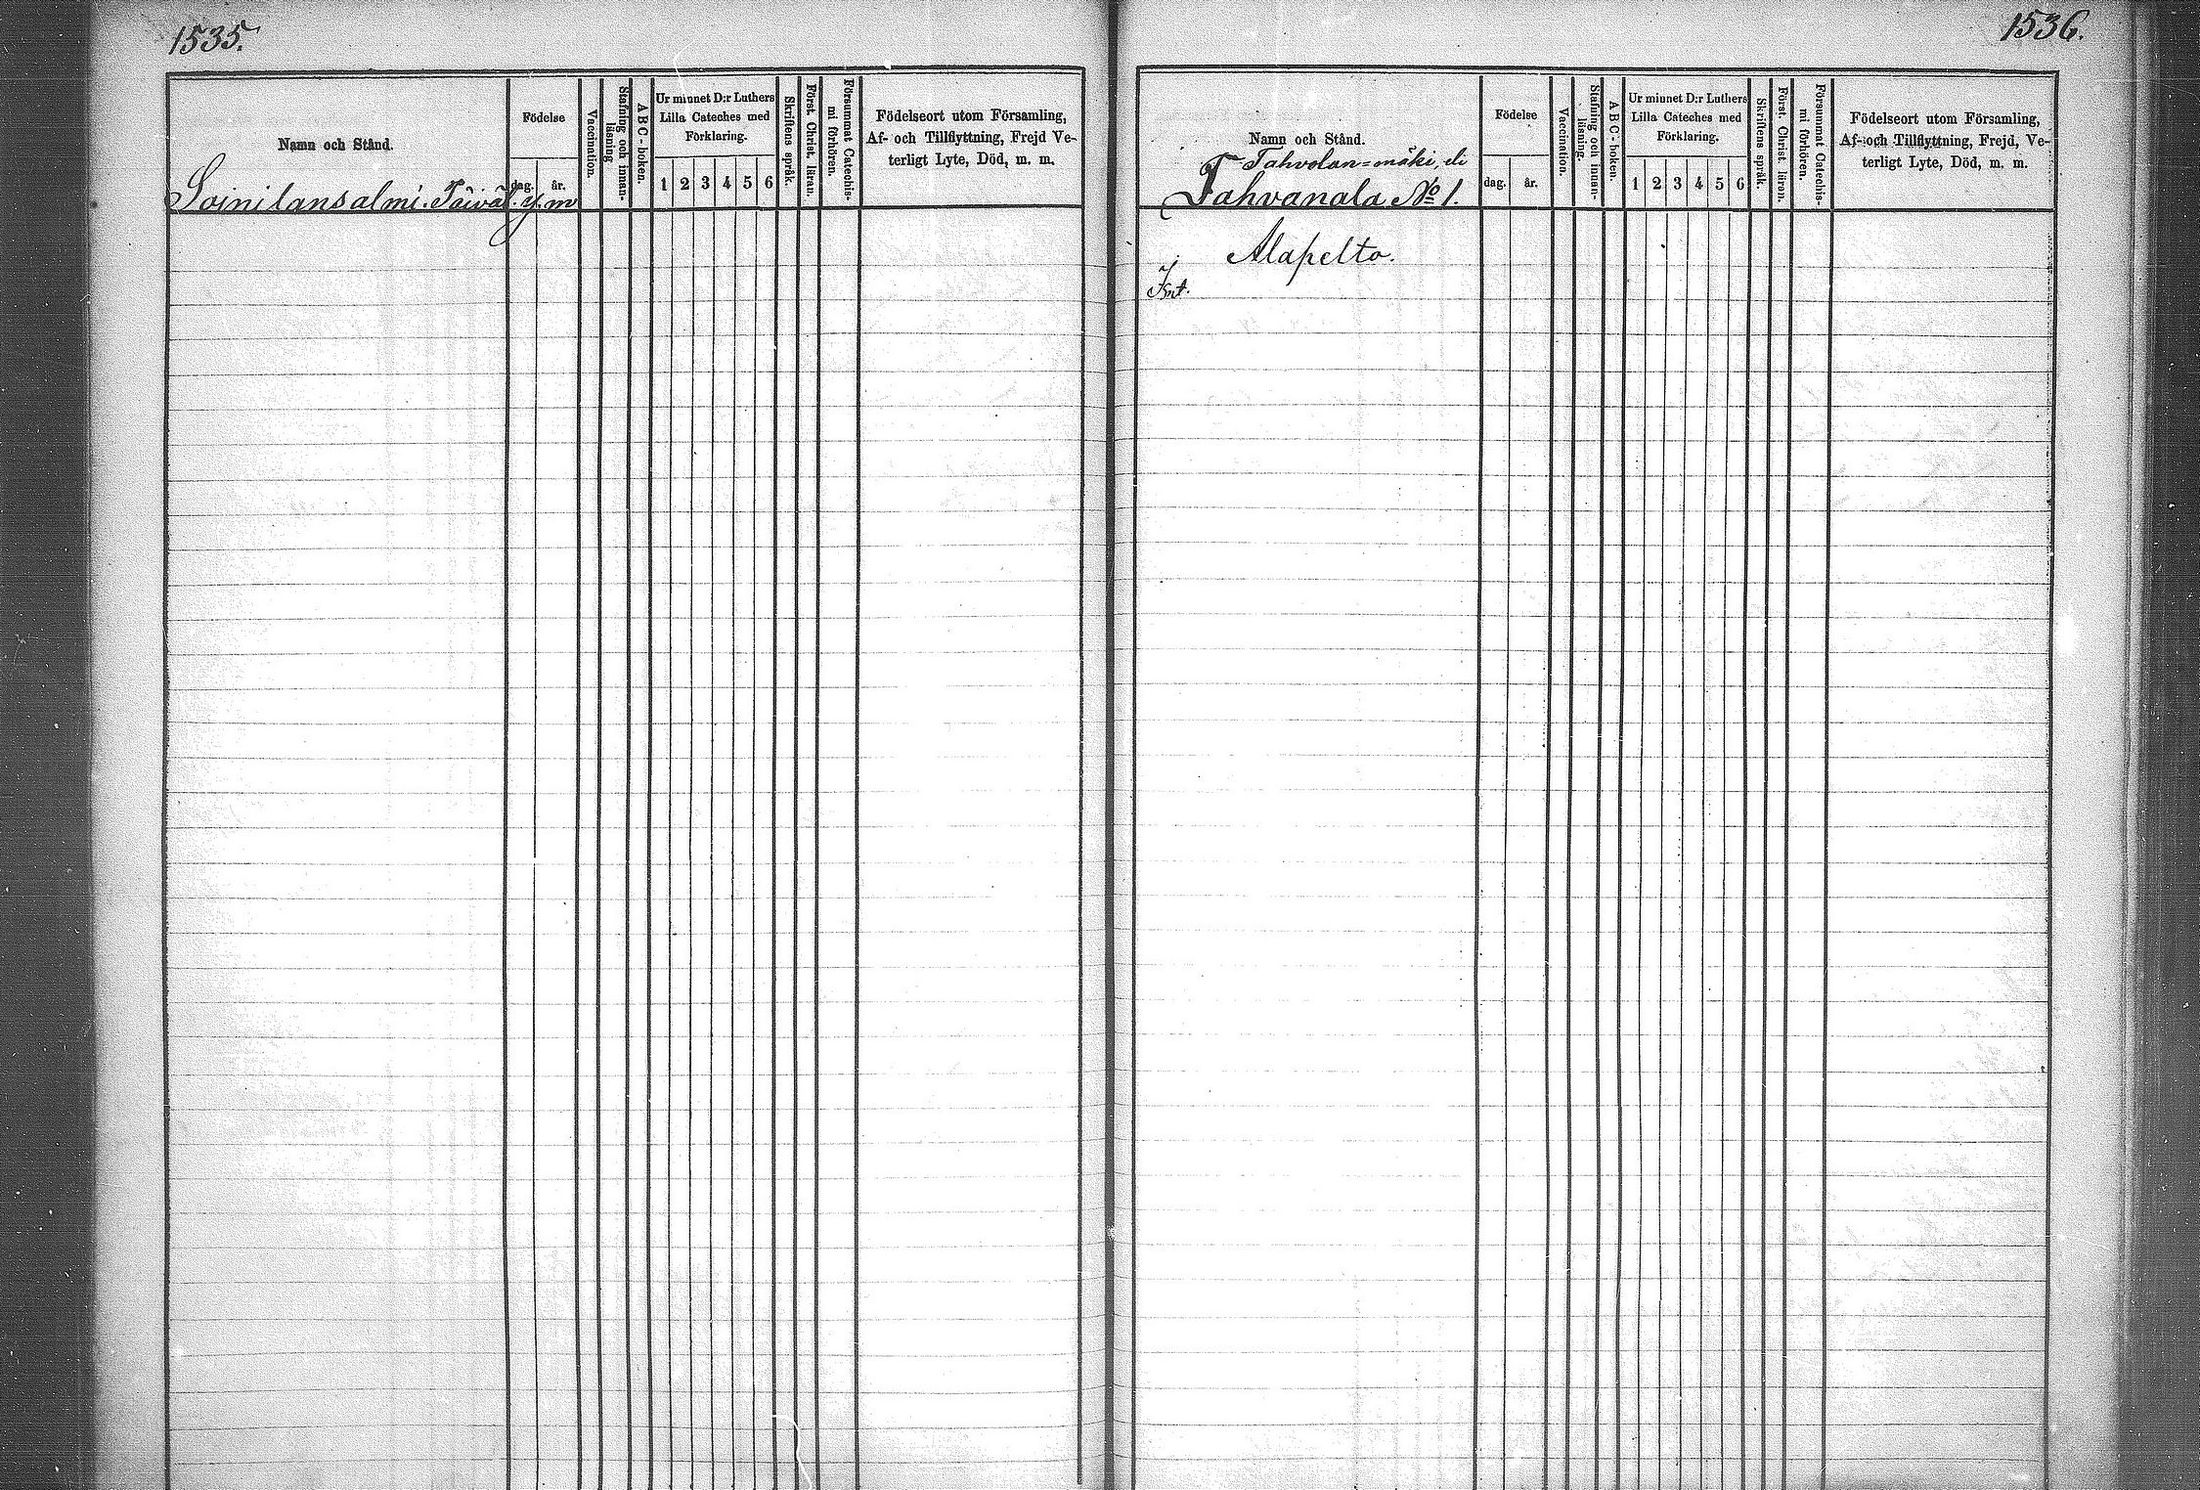 1535.
Namn och Stånd.
Födelse
dag.
år.
Vaccination.
Stafning och innan-
läsning
A B C - boken.
Ur minnet D:r Luthers
Lilla Cateches med
Förklaring.
1 2 3 4 5 6
Skriftens språk.
Först. Christ. läran.
Försummat Catechis-
mi förhören.
Födelseort utom Församling,
Af- och Tillflyttning, Frejd Ve-
terligt Lyte, Död, m. m.
Soinilansalmi.
1536.
Namn och Stånd.
Tahvolan=mäki, eli
Tahvanala No 1.
Födelse
dag.
år.
Vaccination.
Stafning och innan-
läsning.
A B C - boken.
Ur minnet D:r Luthers
Lilla Cateches med
Förklaring.
1 2 3 4 5 6
Skriftens språk.
Först. Christ. läran.
Försummat Catechis-
mi förhören.
Födelseort utom Församling,
Af- och Tillflyttning, Frejd, Ve-
terligt Lyte, Död, m. m.
Alapelto.